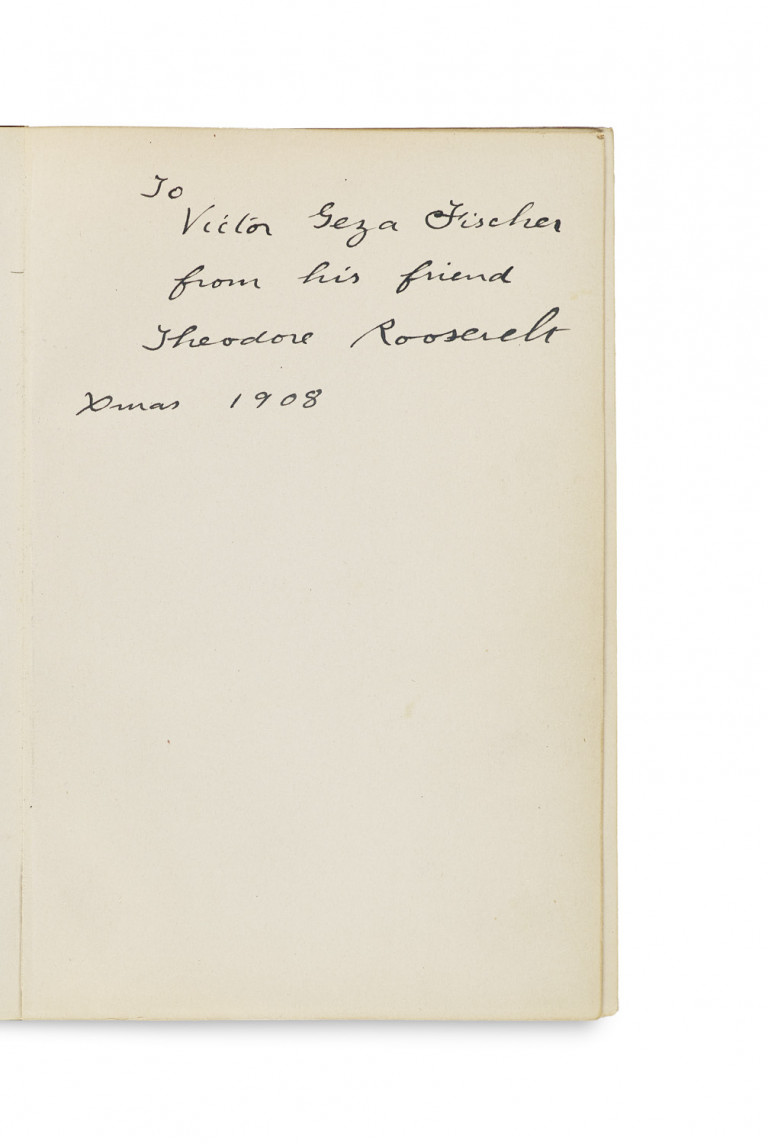 To
Victor Geza Fischer
from his friend
Theodore Roosevelt
Xmas 1908